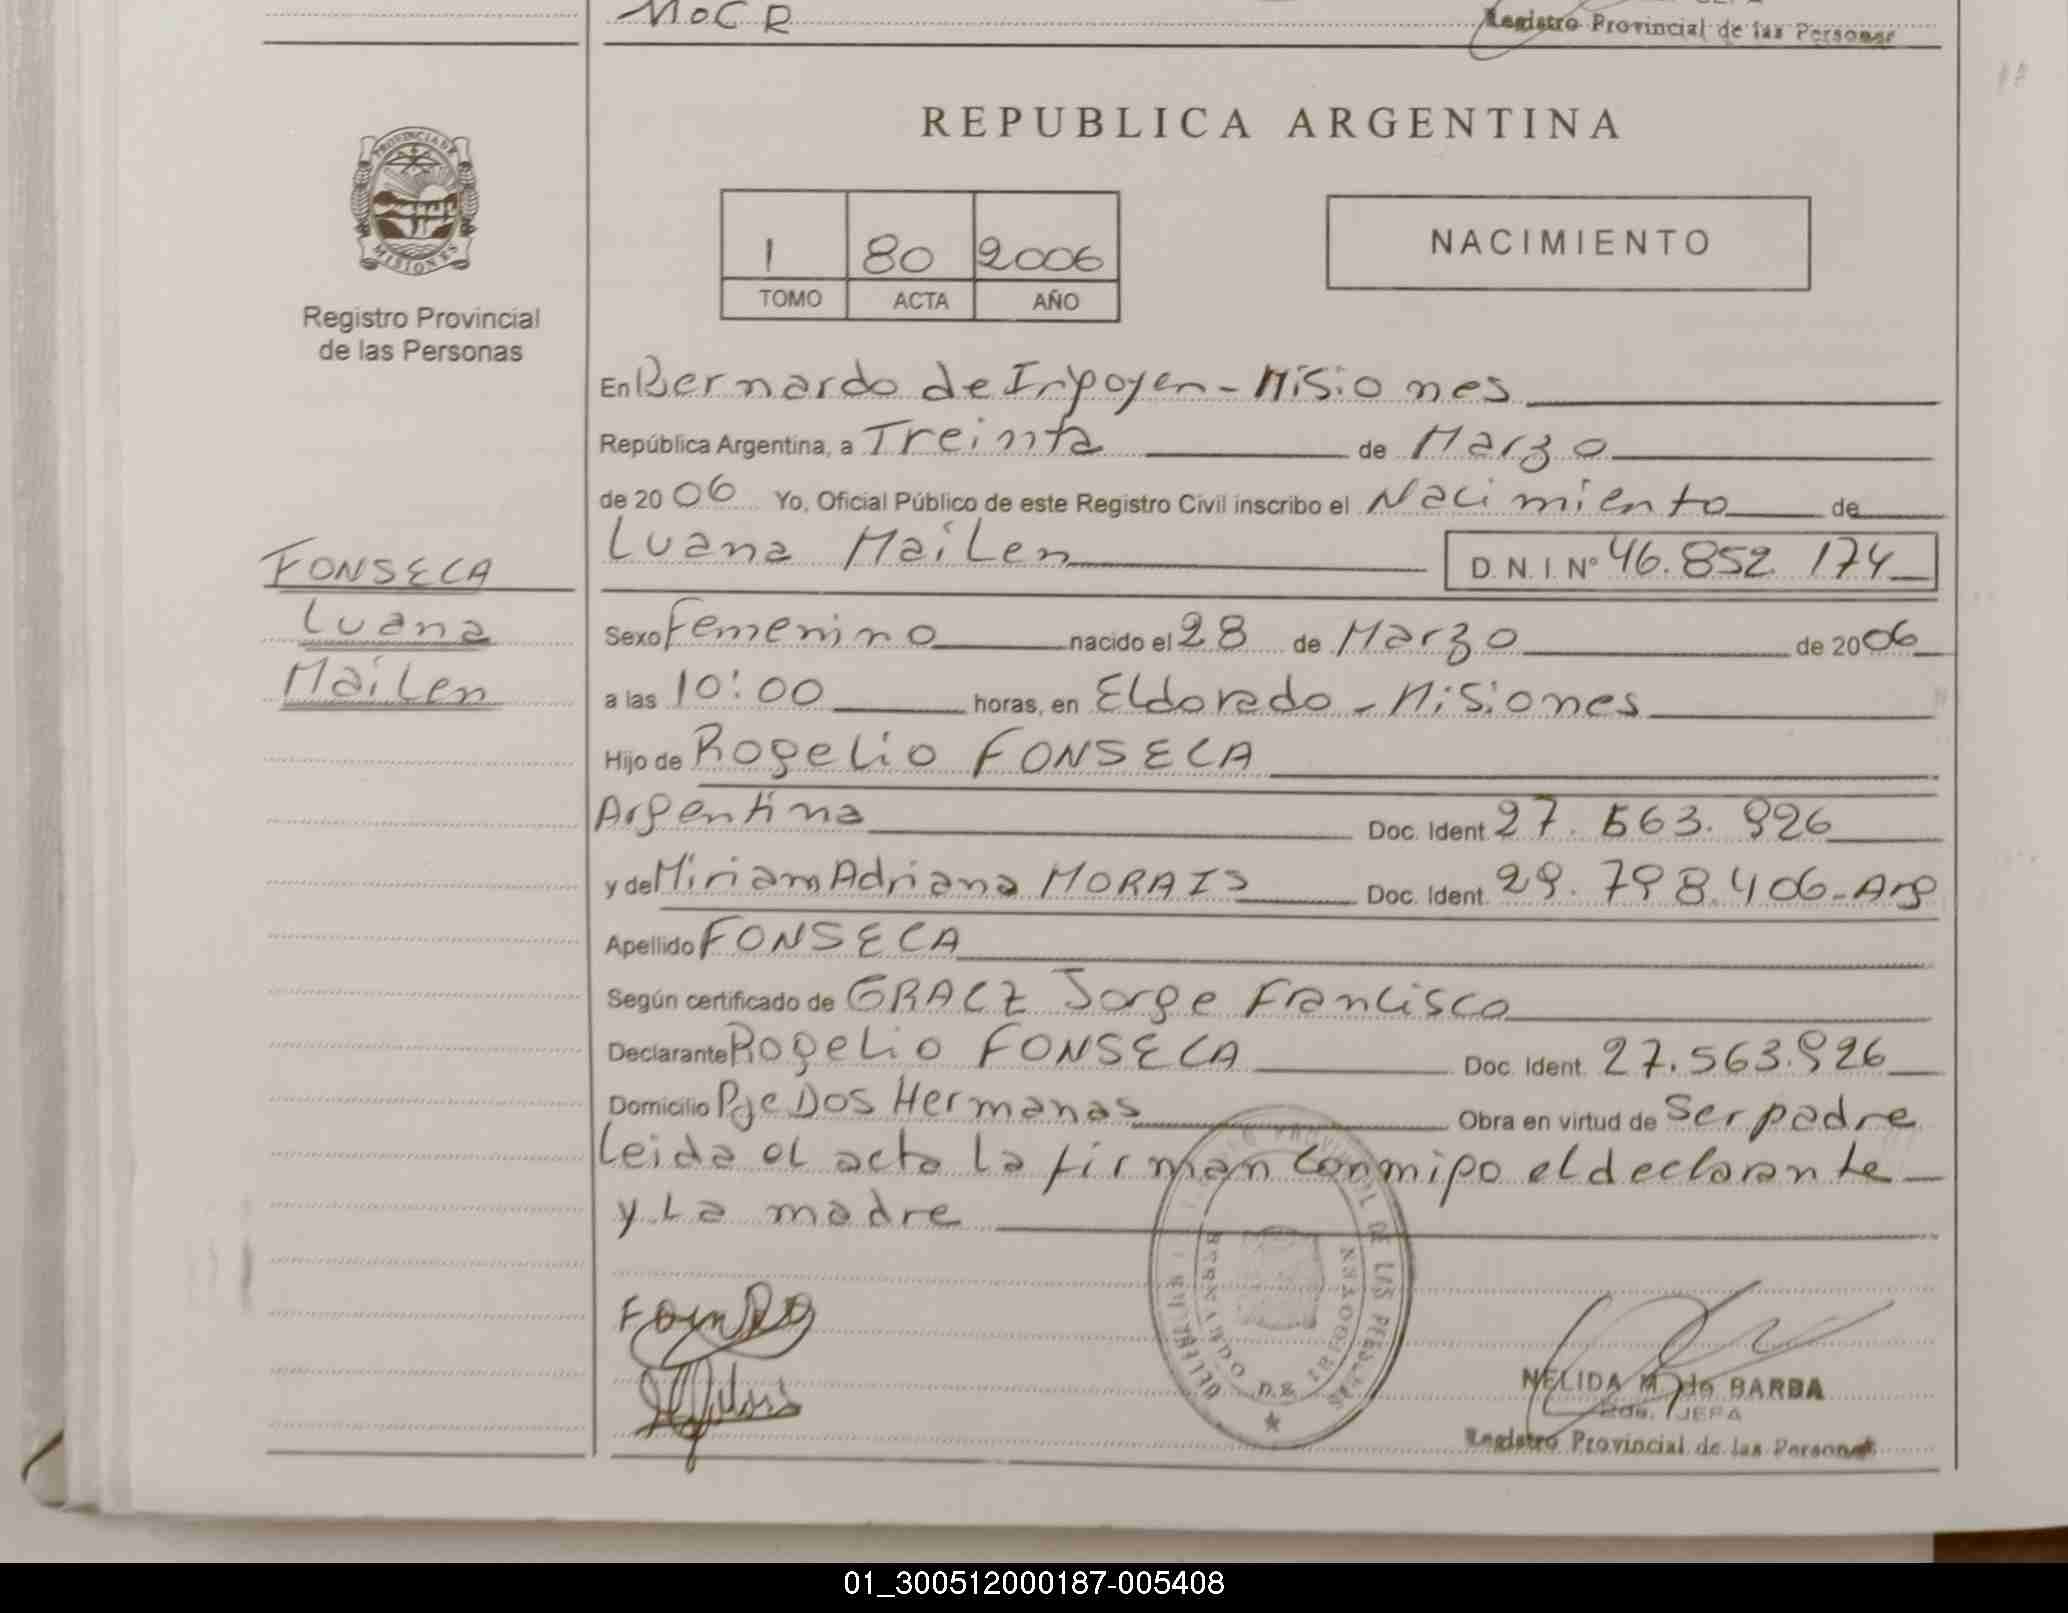 MOCR
Registro Provincial de las Personas
REPUBLICA ARGENTINA
PROVINCIA DE
MISIONES
1 80 2006
TOMO ACTA AÑO
NACIMIENTO
Registro Provincial
de las Personas
En Bernardo de Irigoyen - Misiones
República Argentina, a Treinta de Marzo
de 20 06 Yo, Oficial Público de este Registro Civil inscribo el Nacimiento de
Luana Mailen D. N. I. Nº 46.852.174
FONSECA
Luana
Mailen
Sexo Femenino nacido el 28 de Marzo de 20 06
a las 10:00 horas, en Eldorado - Misiones
Hijo de Rogelio FONSECA
Argentina Doc. Ident. 27.563.926
y de Miriam Adriana MORAIS Doc. Ident. 29.798.406 - Arg
Apellido FONSECA
Según certificado de GRACZ Jorge Francisco
Declarante Rogelio FONSECA Doc. Ident. 27.563.926
Domicilio Pje Dos Hermanas Obra en virtud de Ser padre
Leida el acta la firman conmigo el declarante
y La madre
NELIDA M. de BARBA
JEFA
Registro Provincial de las Personas
01_300512000187-005408